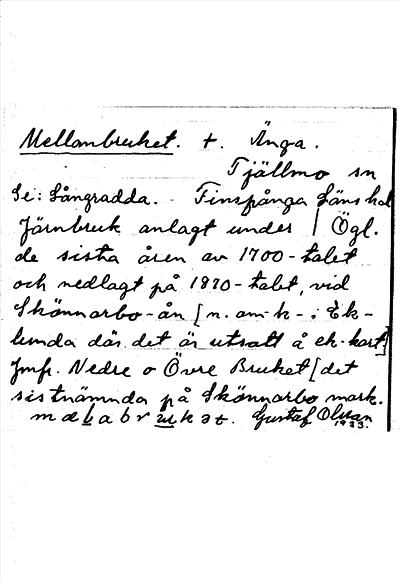 Mellanbruket. t. Änga.
Tjällmo sn
Se: Långradda. - Finspånga läns hd
Järnbruk anlagt under | Ögl.
de sista åren av 1700-talet
och nedlagt på 1870-talet, vid
Skönnarbo-ån [n. am-k- i Ek-
lunda där det är utsatt å ek-kart]
Jmfr. Nedre o Övre Bruket [det
sistnämnda på Skönnarbo mark.
Gustaf Olsson
1933.